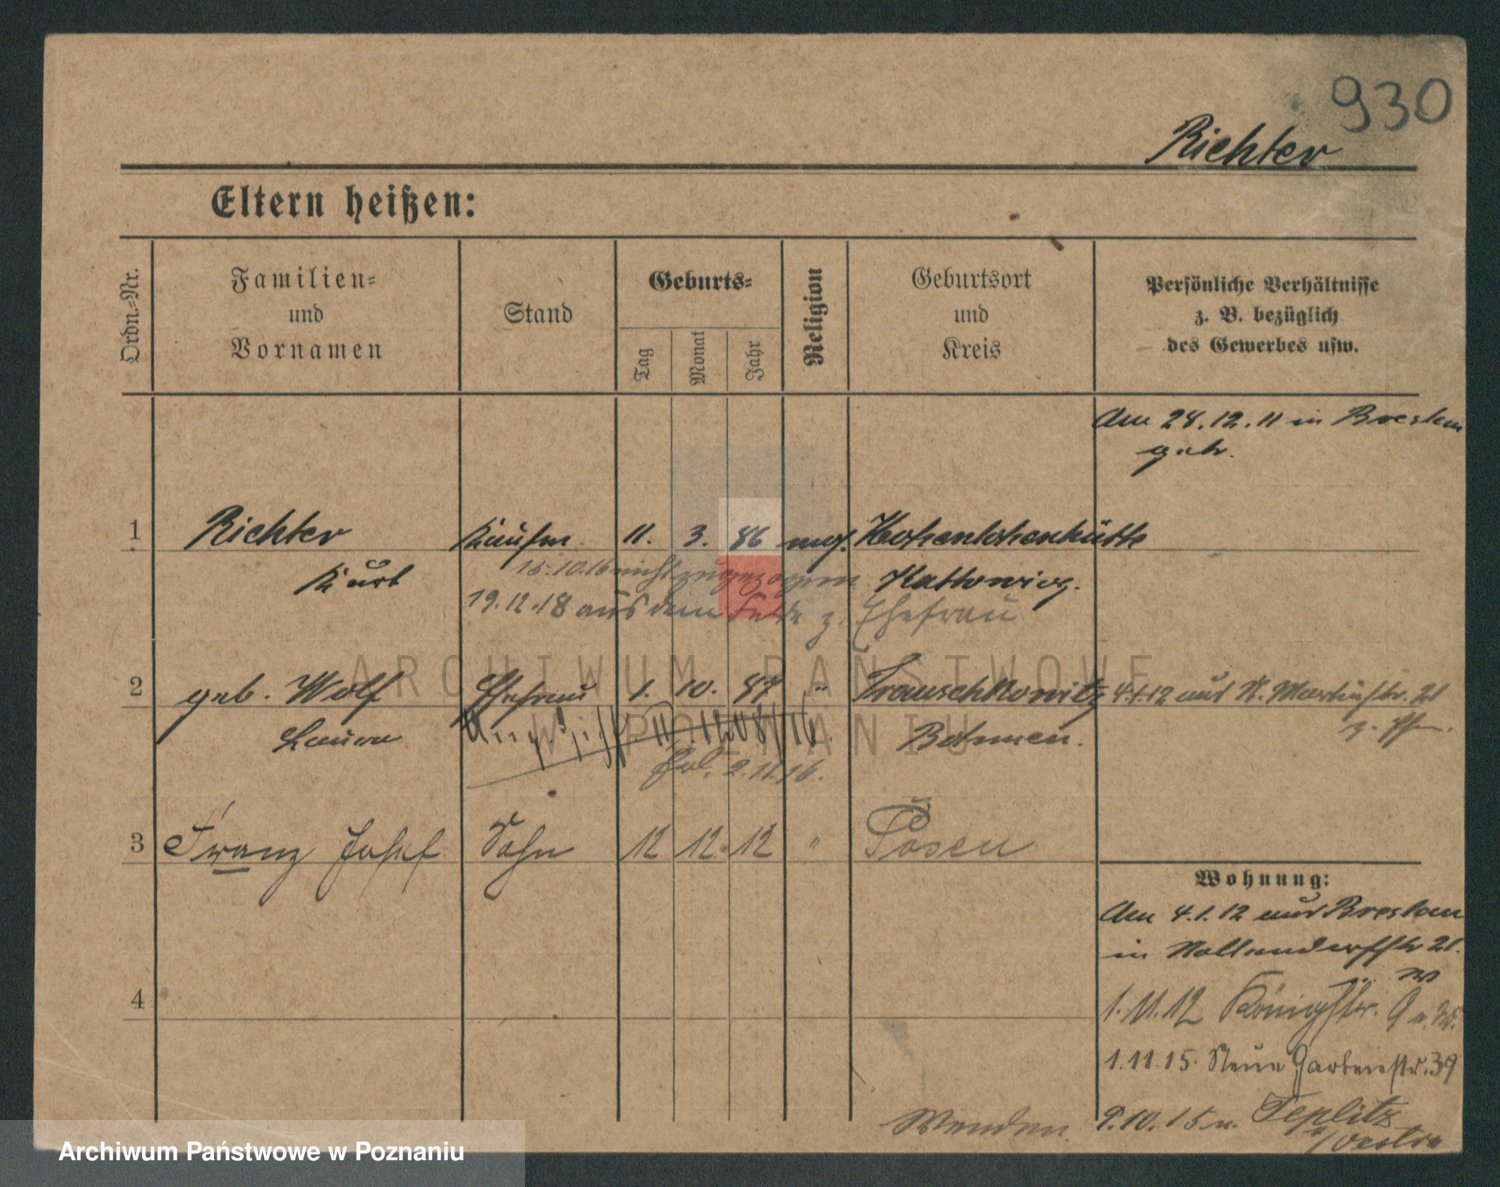 930
Richter
Eltern heißen:
Ordn.-Nr.
Familien-
und
Vornamen
Stand
Geburts-
Tag
Monat
Jahr
Religion
Geburtsort
und
Kreis
Persönliche Verhältnisse
z. B. bezüglich
des Gewerbes usw.
Am 24.12.11 in Breslau
geh.
1 Richter Kaufm. 11. 3. 86 Hohenlohenhütte
Kurt 15.10.16 nicht zugezogen Kattowitz.
19.12.18 aus dem Felde z. Ehefrau
ARCHIWUM PAŃSTWOWE
W POZNANIU
2 geb. Wolf Ehefrau 1. 10. 87 " Trauschkowitz 4.1.12 auf St. Martinstr. 21
Laura Böhmen.
2.11.16.
3 Franz Josef Sohn 12 12. 12 " Posen
Wohnung:
Am 4.1.12 aus Breslau
in 21.
4
1.11.12 Königstr. 9
1.11.15. Neue Gartenstr. 39
9.10.15 n. Teplitz
Wenden.
Archiwum Państwowe w Poznaniu